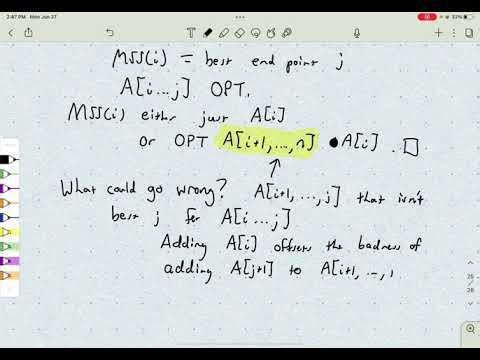 2:47 PM Mon Jun 27
MSS(i) = best end point j
A[i...j] OPT.
MSS(i) either just A[i]
or OPT A[i+1,...,n] • A[i] . □
What could go wrong? A[i+1,...,j] that isn't
best j for A[i...j]
Adding A[i] offsets the badness of
adding A[j+1] to A[i+1,...,
25
/
26